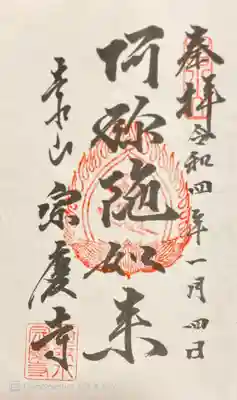 奉拝 令和四年一月四日
阿弥陁如来
吉水山 宗慶寺